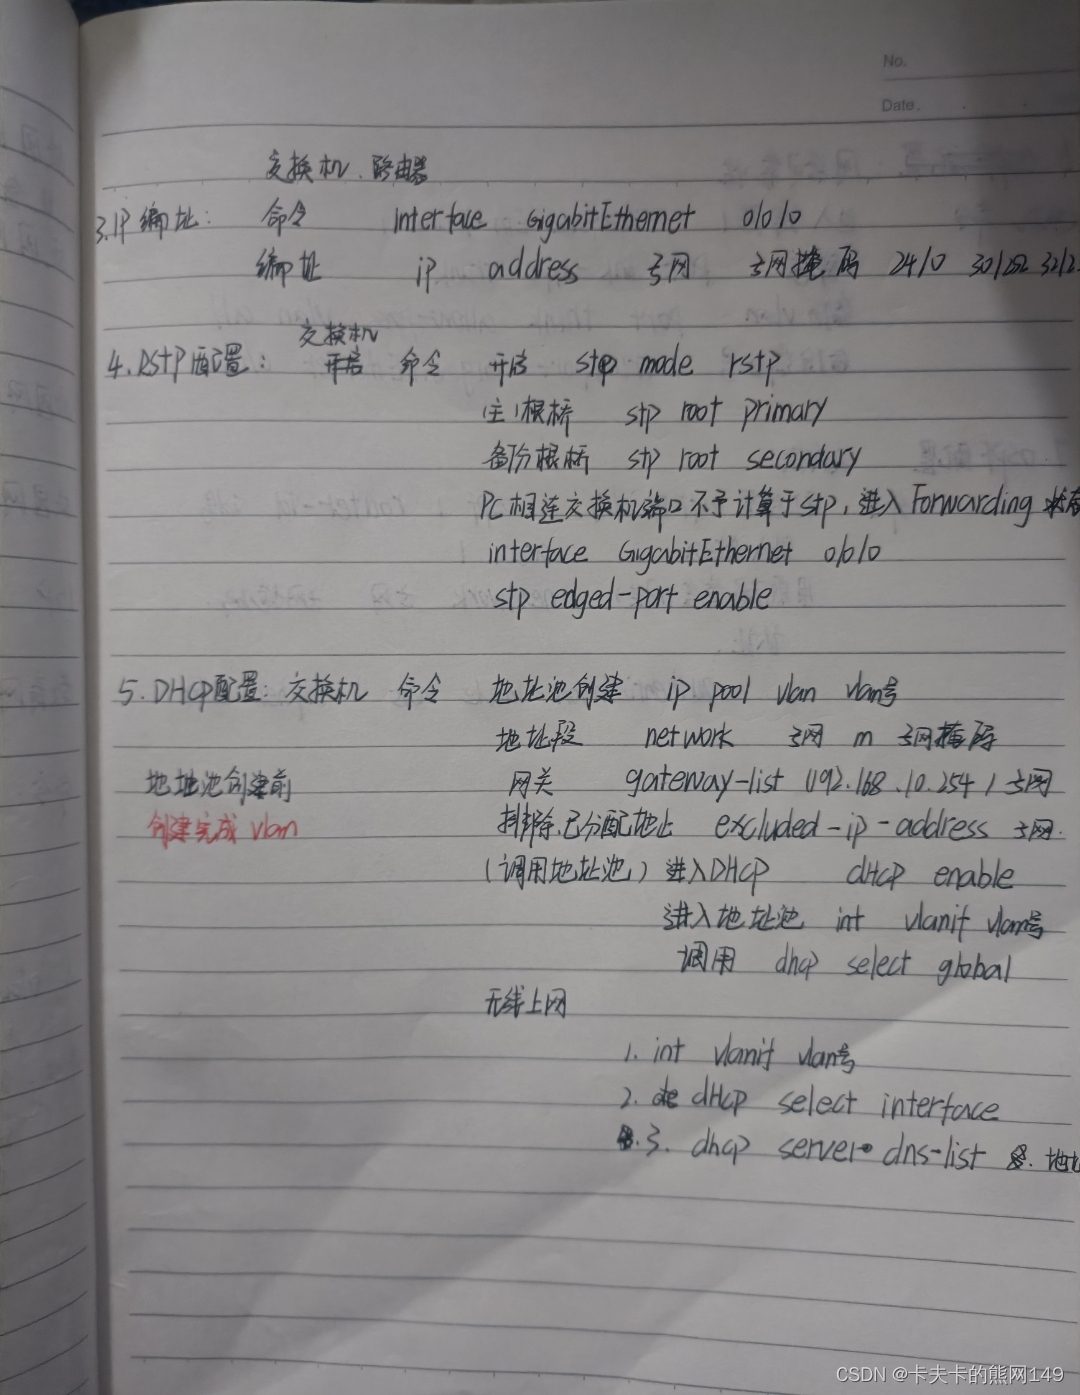 No.
Date.
交换机、路由器
3.IP编址: 命令 interface GigabitEthernet 0/0/0
编址 ip address 子网 子网掩码 24/0 30/252 32/2
交换机
4.RSTP配置: 开启 命令 开启 stp mode rstp
(主)根桥 stp root primary
备份根桥 stp root secondary
PC相连交换机端口不予计算于stp,进入Forwarding状态
interface GigabitEthernet 0/0/0
stp edged-port enable
5.DHCP配置: 交换机 命令 地址池创建 ip pool vlan vlan号
地址段 network 子网 m 子网掩码
地址池创建前 网关 gateway-list (192.168.10.254)子网
创建完成vlan 排除已分配地址 excluded-ip-address 子网.
(调用地址池) 进入DHCP dHCP enable
进入地址池 int vlanif vlan号
调用 dhcp select global
无线上网
1. int vlanif vlan号
2. dHCP select interface
3. dhcp server dns-list 地址
CSDN @卡夫卡的熊网149